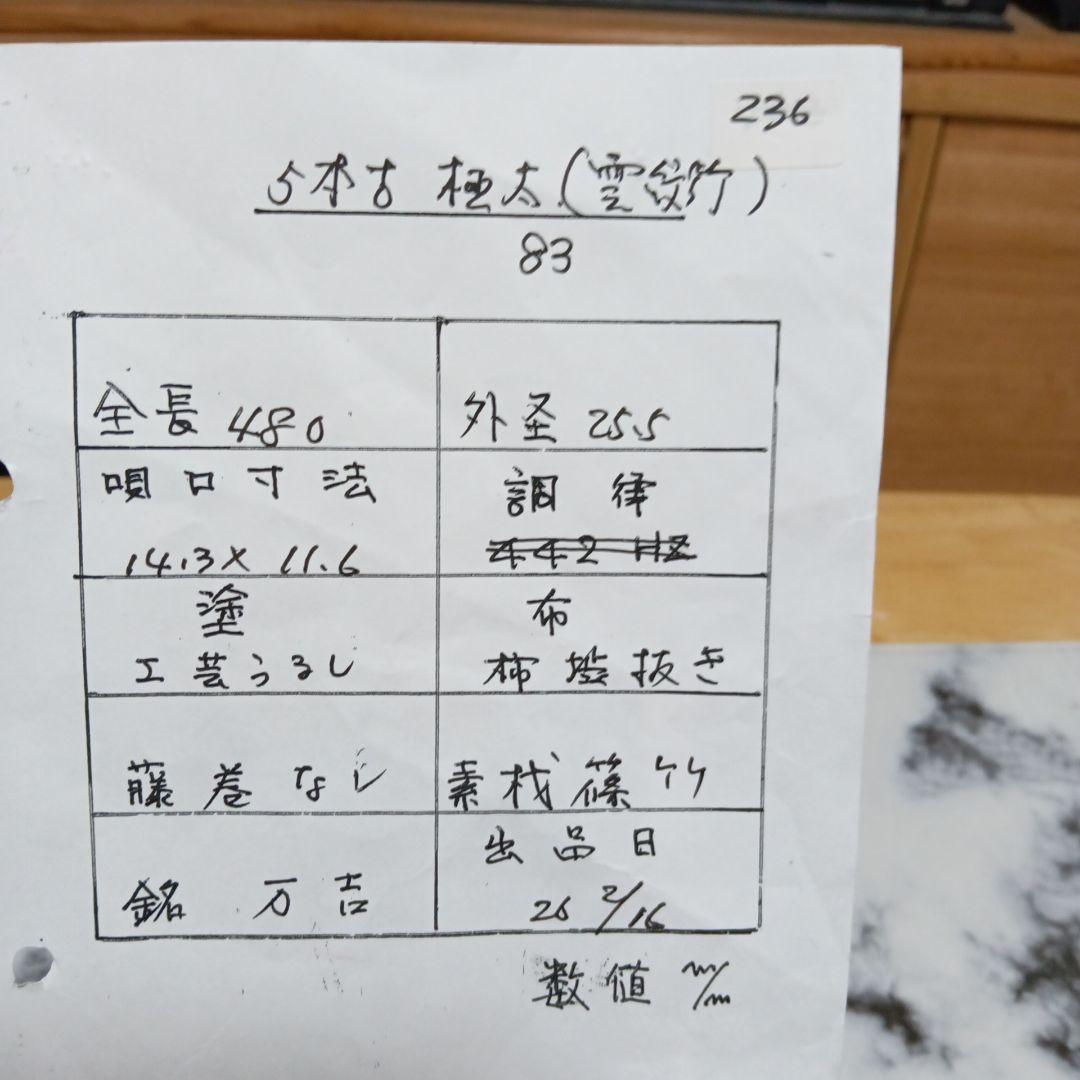 236
5本古 極太(雲紋竹)
83
全長 480
外圣 25.5
唄口寸法
14.3× 11.6
調律
442 Hz
塗
工芸うるし
布
柿渋抜き
藤巻なし
素材篠竹
銘 万吉
出品日
26 2/16
数値 m/m